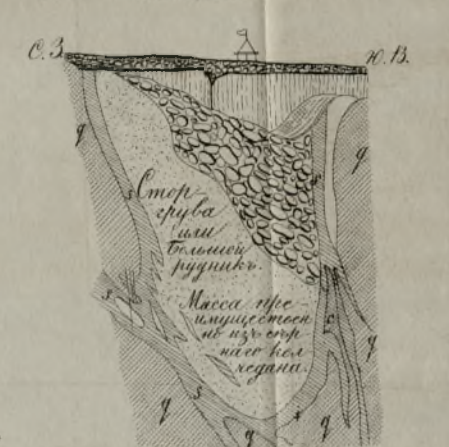 С. З.
Ю. В.
g
g
s
s
Стор-
грува
или
большой
рудникъ.
s
Масса пре-
имуществен
но изъ сѣр
наго кол
чедана.
s
g
s
g
g
g